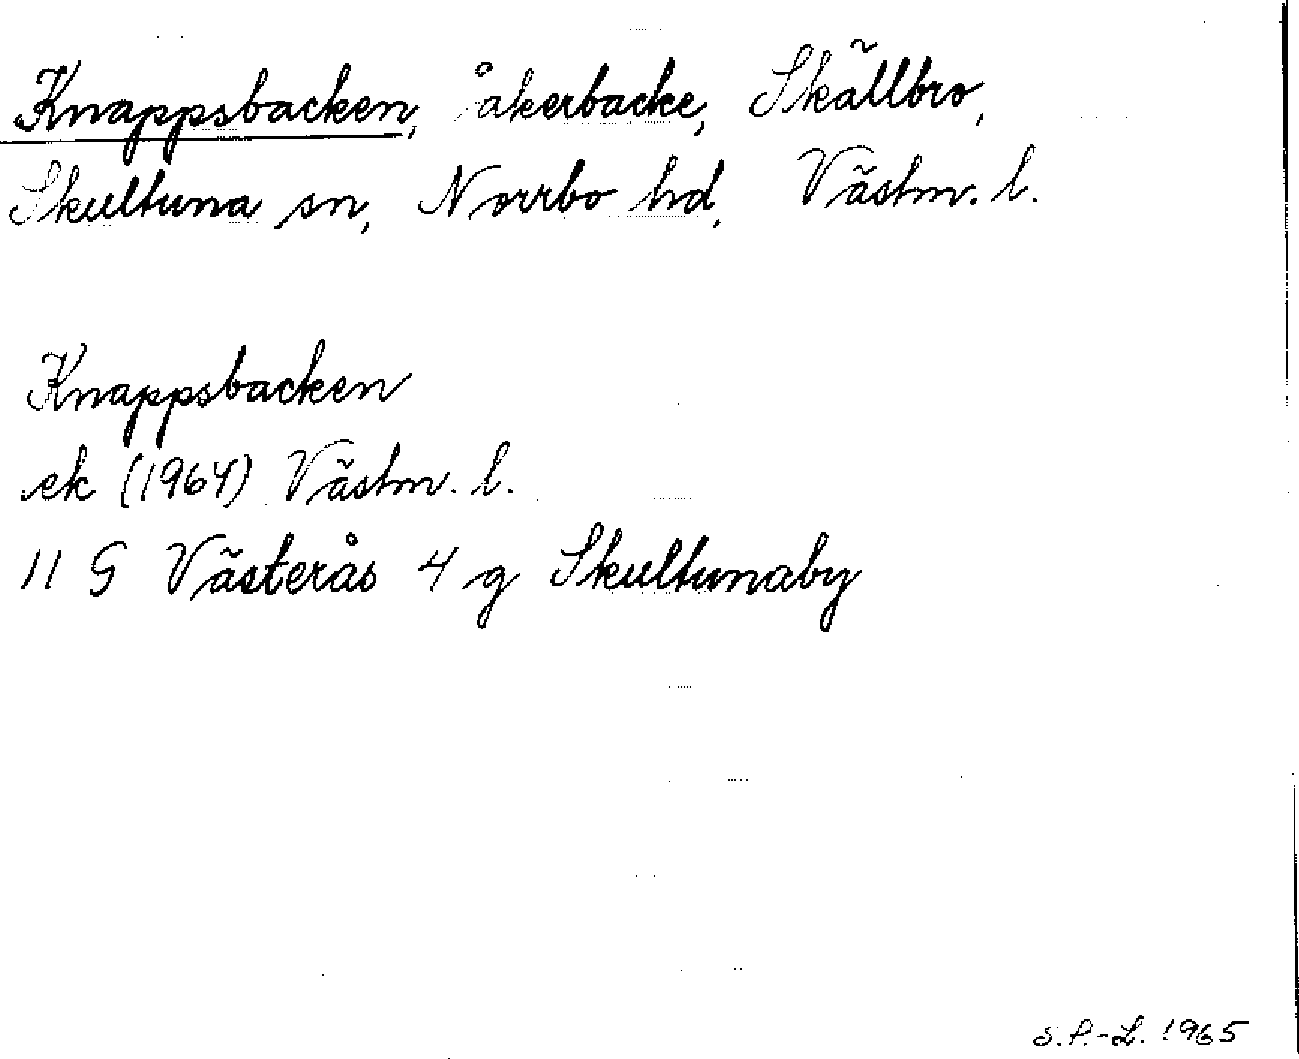 Knappsbacken, åkerbacke, Skällbro,
Skultuna sn, Norrbo hd, Västm. l.
Knappsbacken
ek (1964) Västm. l.
11 G Västerås 4 g Skultunaby
S.P.-L. 1965